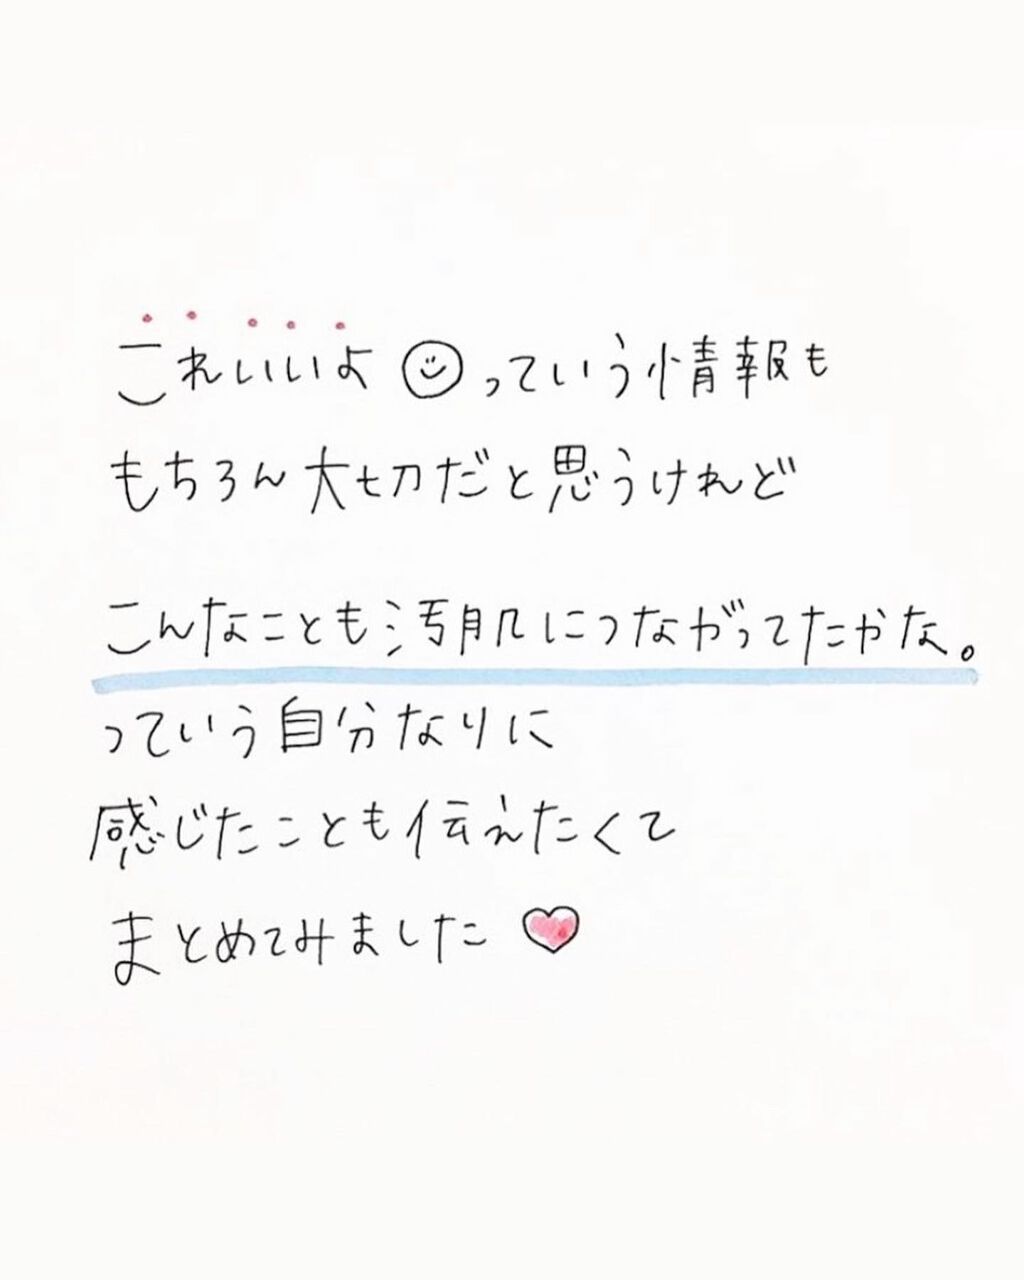 これいいよ☺っていう情報も
もちろん大切だと思うけれど
こんなことも汚肌につながってたかな。
っていう自分なりに
感じたことも伝えたくて
まとめてみました♥